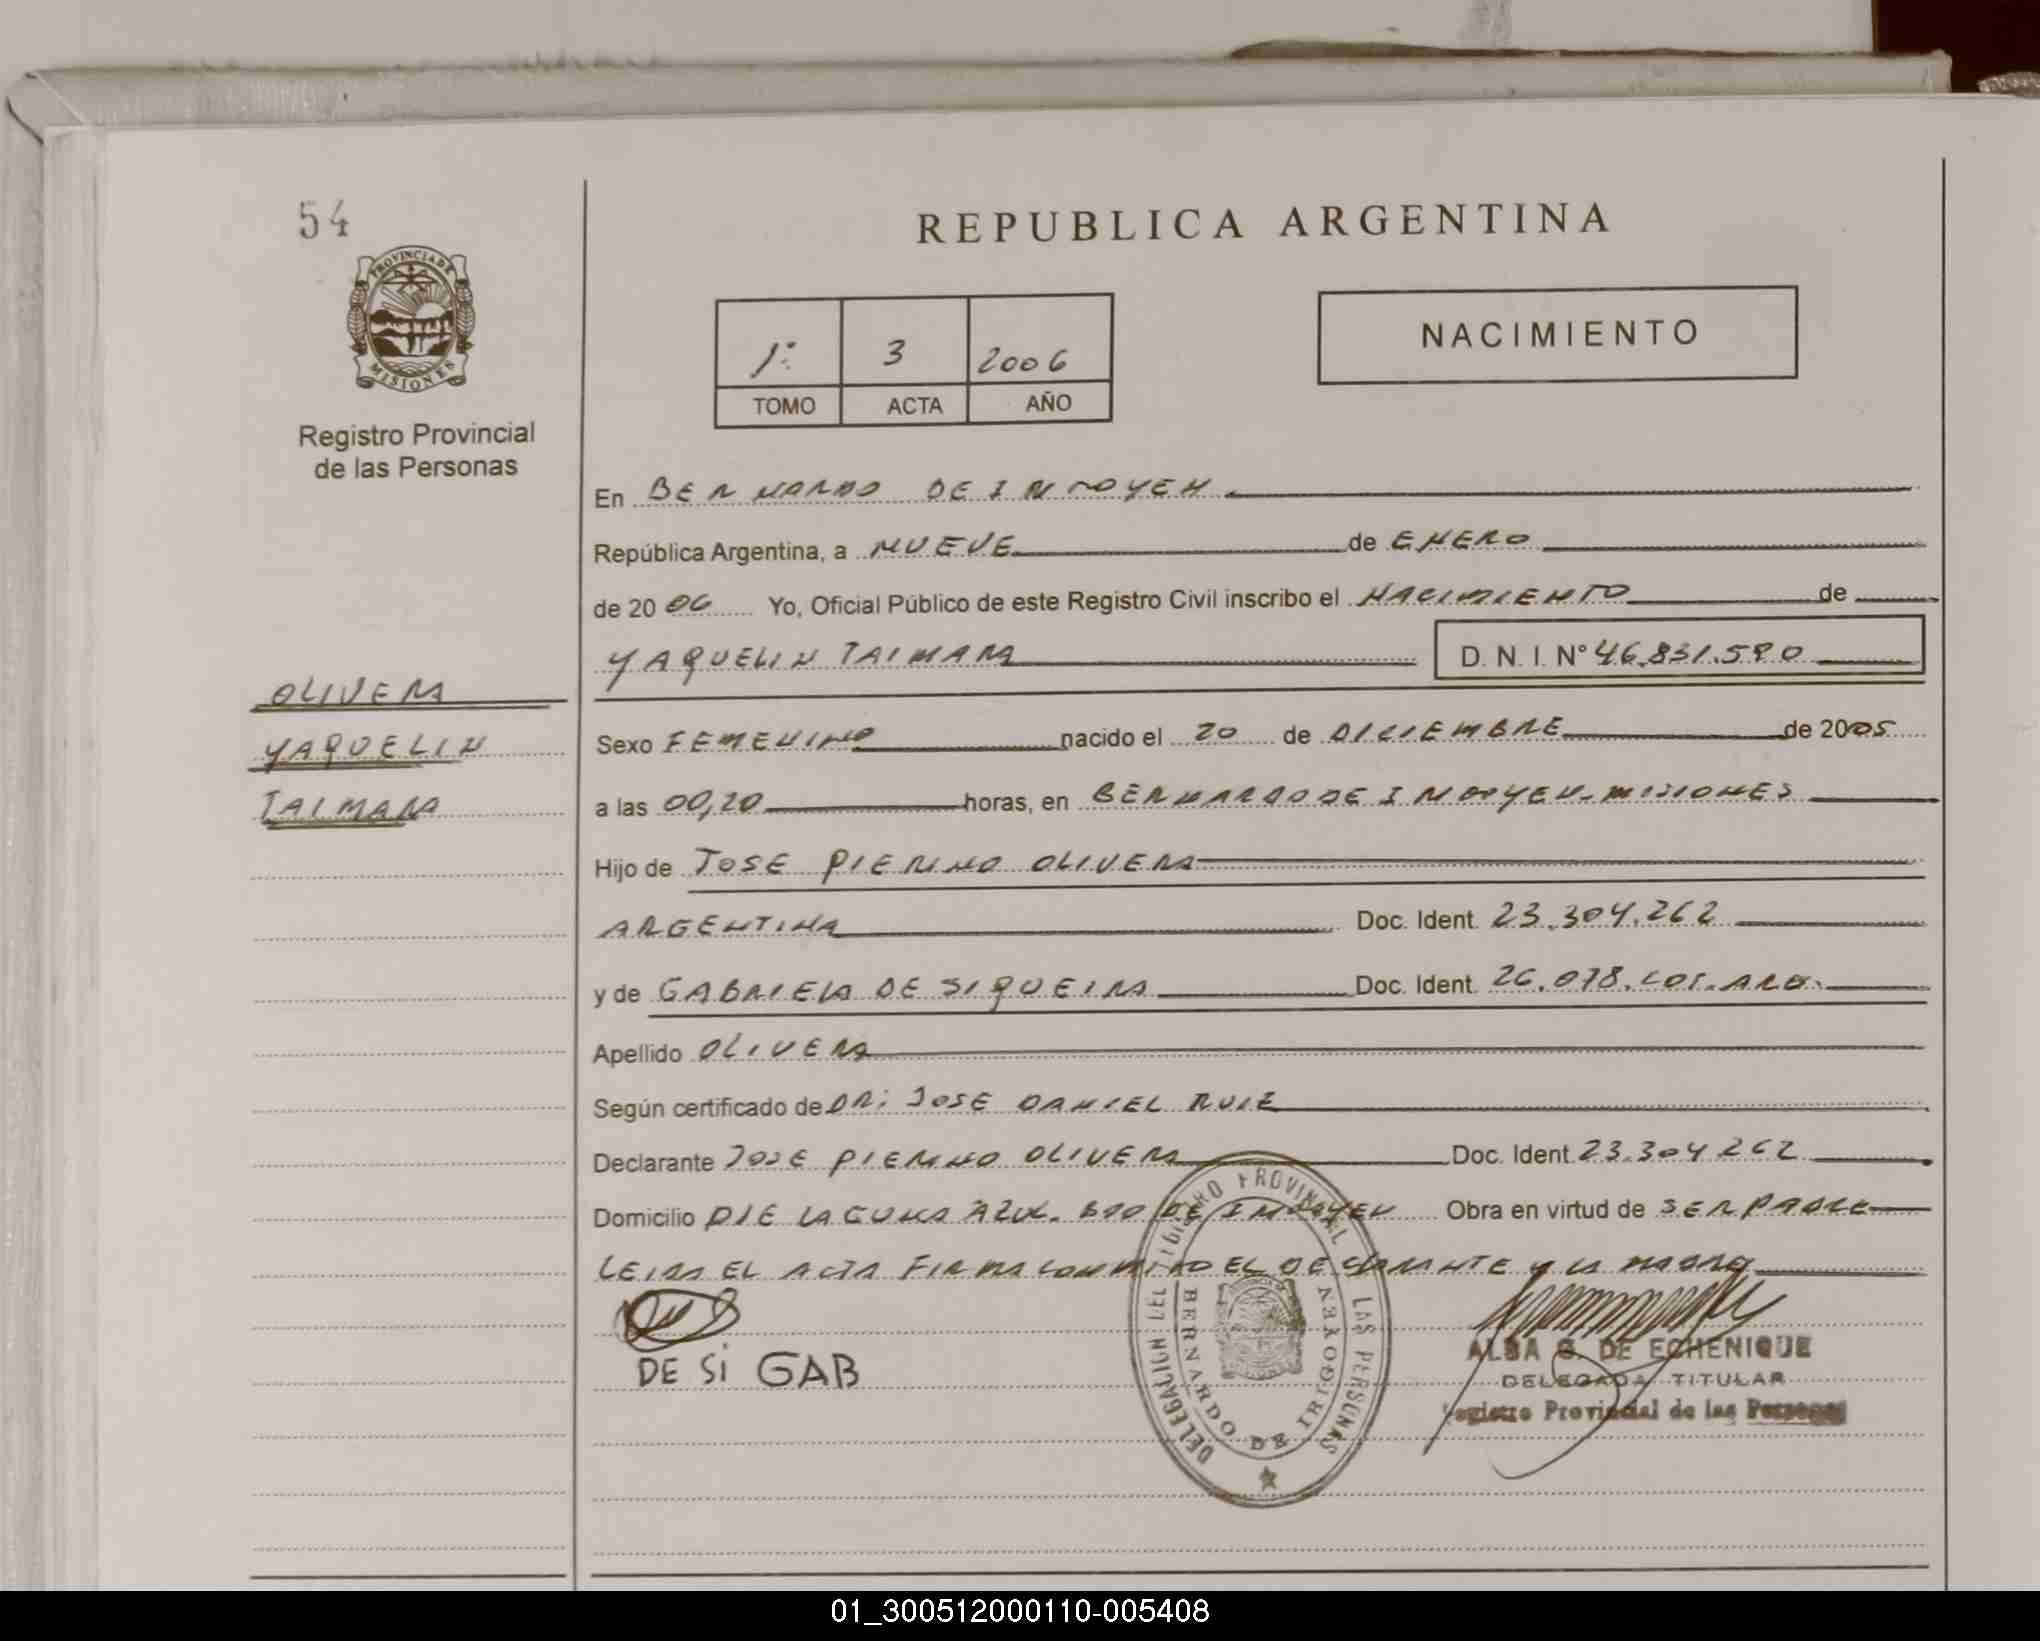 54
PROVINCIA DE
MISIONES
Registro Provincial
de las Personas
REPUBLICA ARGENTINA
1º 3 2006
TOMO ACTA AÑO
NACIMIENTO
En BERNARDO DE IRIGOYEN
República Argentina, a NUEVE de ENERO
de 20 06 Yo, Oficial Público de este Registro Civil inscribo el NACIMIENTO de
YAQUELIN TAIMARA D. N. I. Nº 46.831.580
OLIVERA
YAQUELIN
TAIMARA
Sexo FEMENINO nacido el 20 de DICIEMBRE de 2005
a las 00,20 horas, en BERNARDO DE IRIGOYEN-MISIONES
Hijo de JOSE PIERINO OLIVERA
ARGENTINA Doc. Ident. 23.304.262
y de GABRIELA DE SIQUEIRA Doc. Ident. 26.078. ARG.
Apellido OLIVERA
Según certificado de DR: JOSE DANIEL RUIZ
Declarante JOSE PIERINO OLIVERA Doc. Ident 23.304.262
Domicilio PJE LAGUNA AZUL. BDO DE IRIGOYEN Obra en virtud de SER PADRE
LEIDA EL ACTA FIRMA CONMIGO EL DECLARANTE y LA MADRE
DE Si GAB
DELEGACION DEL REGISTRO PROVINCIAL LAS PERSONAS
BERNARDO DE IRIGOYEN
ALBA G. DE ECHENIQUE
DELEGADA TITULAR
Registro Provincial de las Personas
01_300512000110-005408